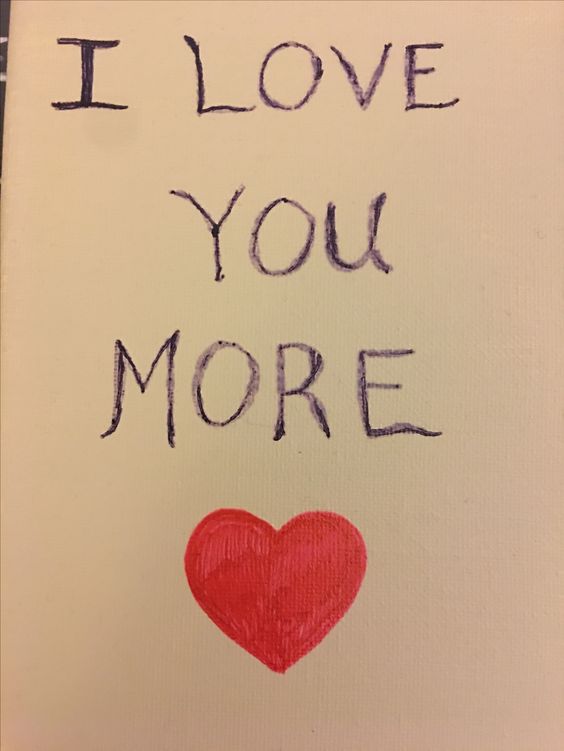 I LOVE
YOU
MORE